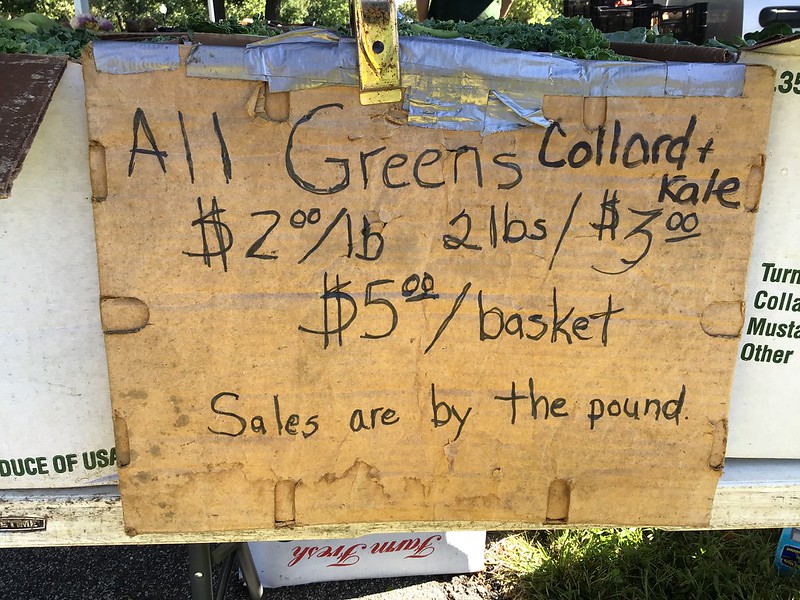 All Greens Collard +
Kale
$2.00/lb 2lbs/$3.00
$5.00/basket
Sales are by the pound.
.35
Turn
Colla
Musta
Other
DUCE OF USA
Farm Fresh